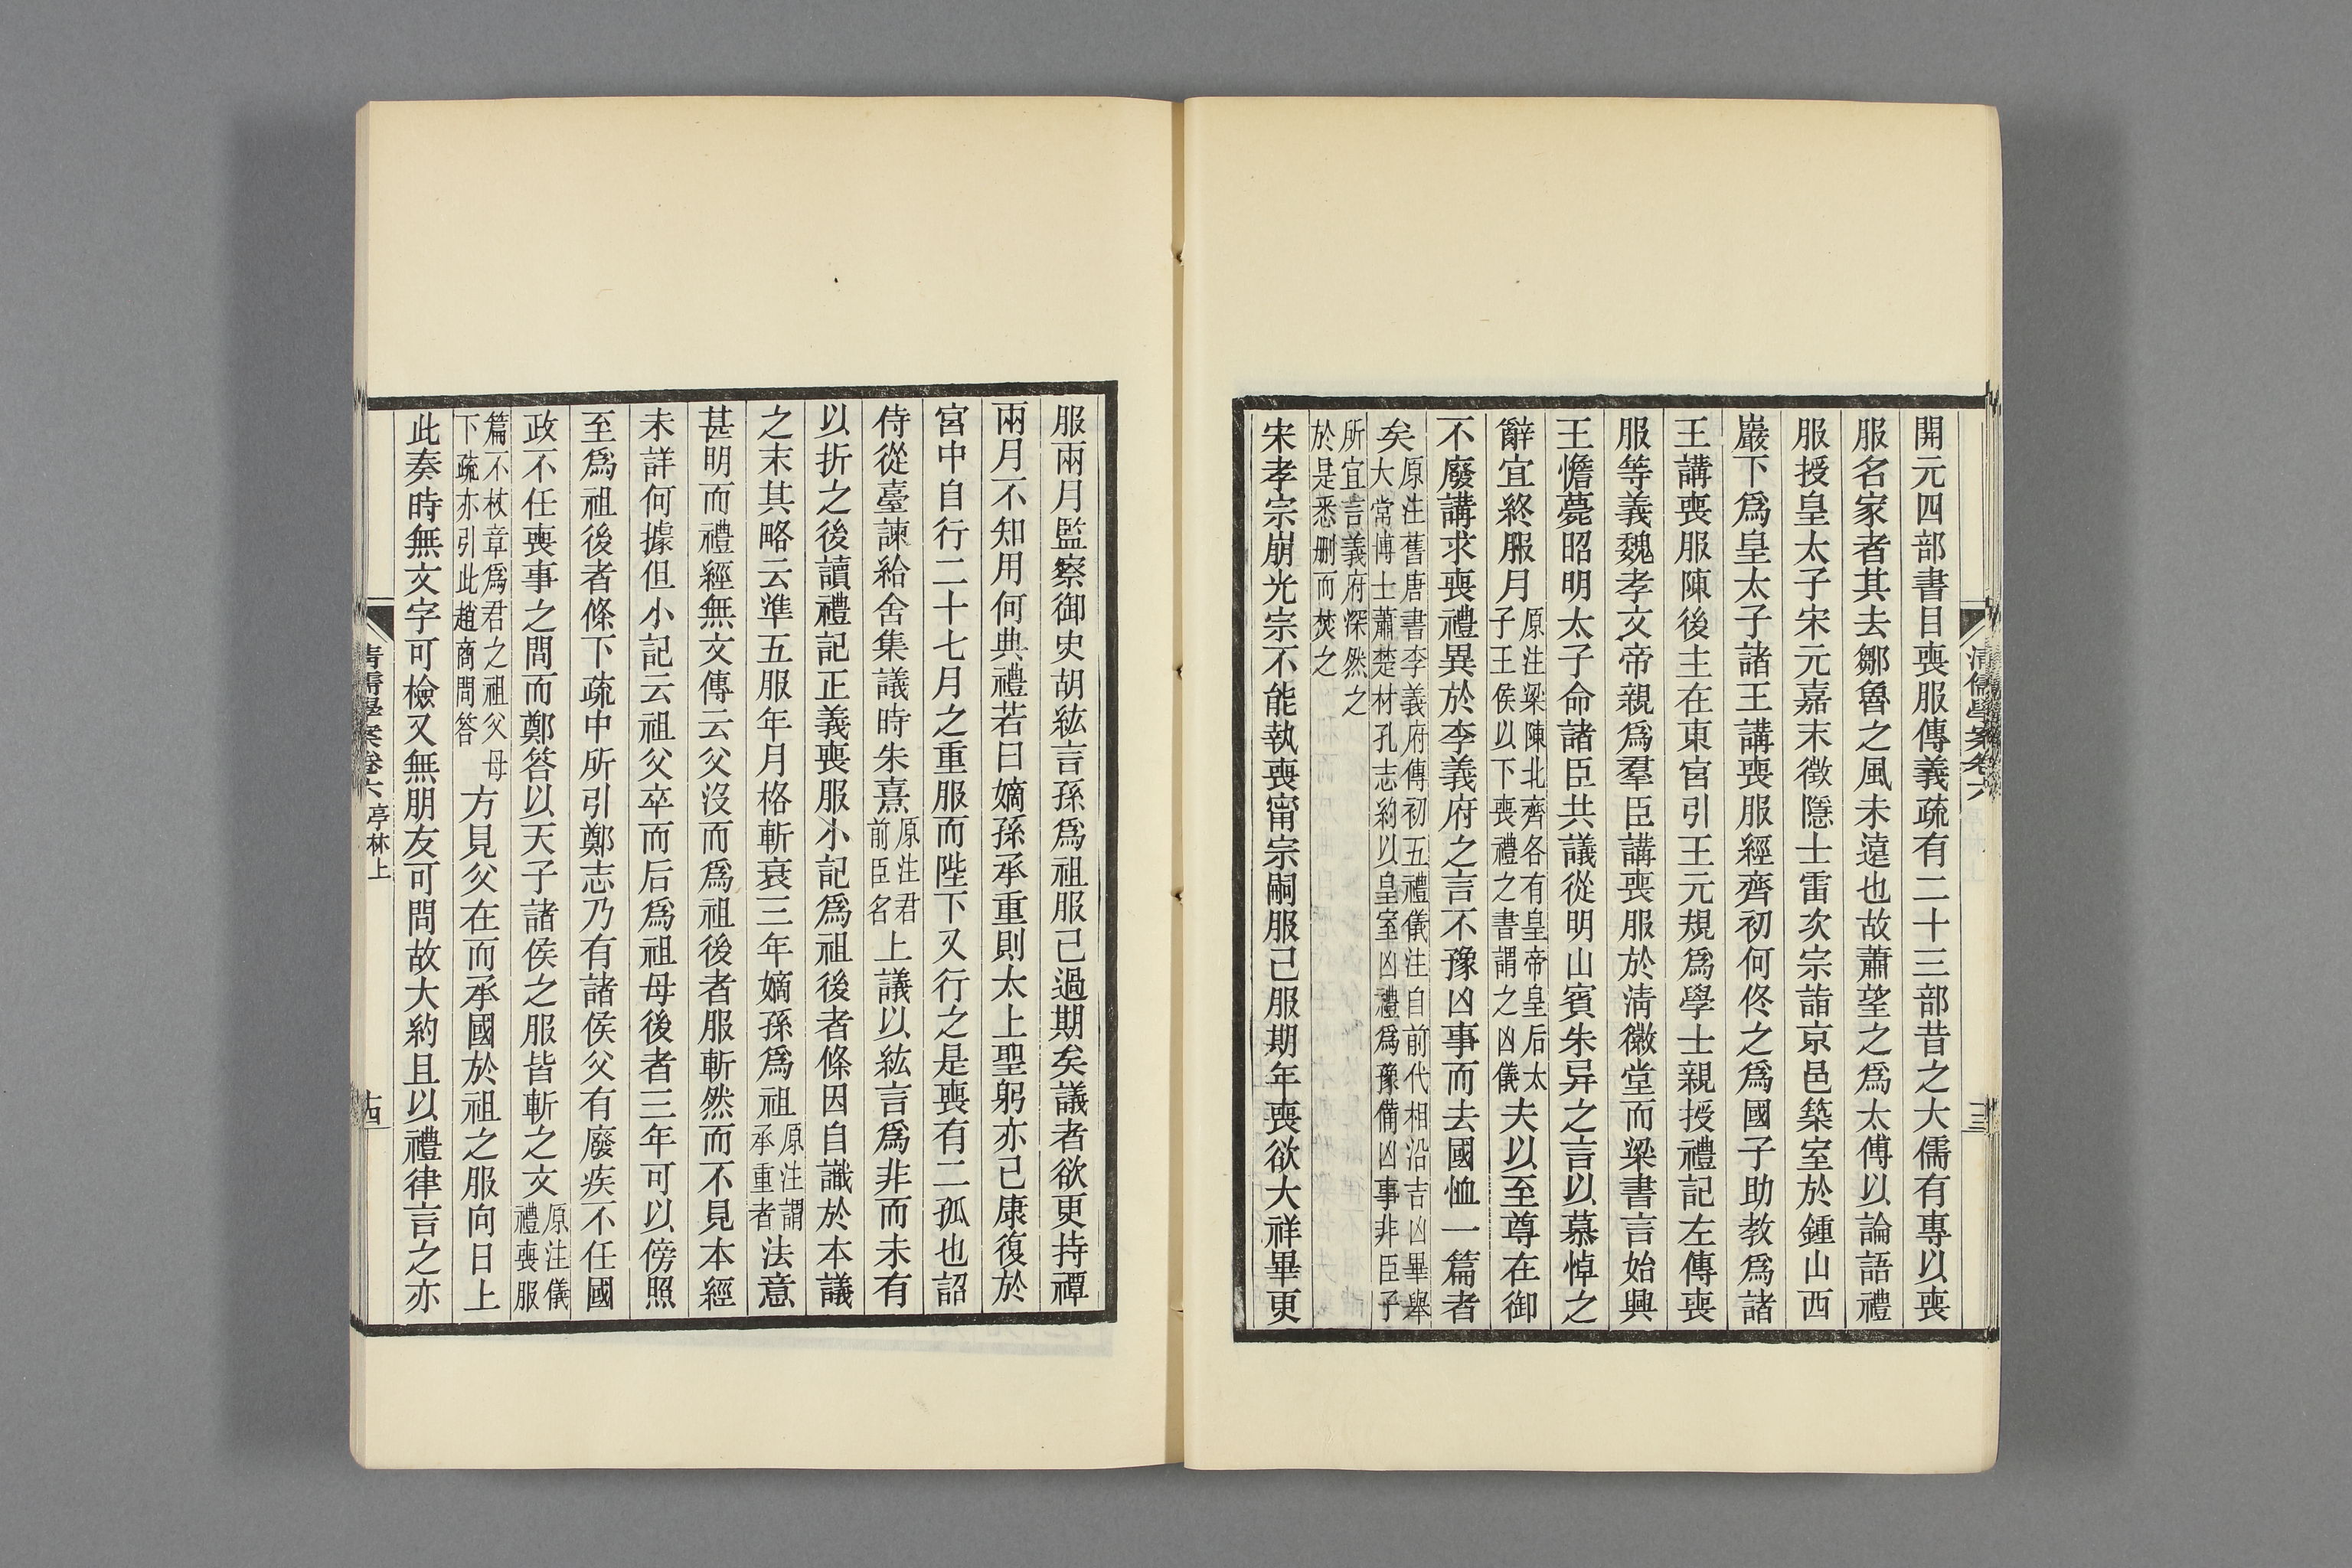 開元四部書目喪服傳義疏有二十三部昔之大儒有專以喪
服名家者其去鄒魯之風未遠也故蕭望之爲太傅以論語禮
服授皇太子宋元嘉末徵隱士雷次宗詣京邑築室於鍾山西
巖下爲皇太子諸王講喪服經齊初何佟之爲國子助教爲諸
王講喪服陳後主在東宮引王元規爲學士親授禮記左傳喪
服等義魏孝文帝親爲羣臣講喪服於淸徽堂而梁書言始興
王憺薨昭明太子命諸臣共議從明山賓朱异之言以慕悼之
辭宜終服月原注梁陳北齊各有皇帝皇后太子王侯以下喪禮之書謂之凶儀夫以至尊在御
不廢講求喪禮異於李義府之言不豫凶事而去國恤一篇者
矣原注舊唐書李義府傳初五禮儀注自前代相沿吉凶畢舉大常博士蕭楚材孔志約以皇室凶禮爲豫備凶事非臣子
所宜言義府深然之於是悉删而焚之
宋孝宗崩光宗不能執喪甯宗嗣服已服期年喪欲大祥畢更
淸儒學案卷六
服兩月監察御史胡紘言孫爲祖服已過期矣議者欲更持禫
兩月不知用何典禮若曰嫡孫承重則太上聖躬亦已康復於
宮中自行二十七月之重服而陛下又行之是喪有二孤也詔
侍從臺諫給舍集議時朱熹原注君前臣名上議以紘言爲非而未有
以折之後讀禮記正義喪服小記爲祖後者條因自識於本議
之末其略云準五服年月格斬衰三年嫡孫爲祖原注謂承重者法意
甚明而禮經無文傳云父沒而爲祖後者服斬然而不見本經
未詳何據但小記云祖父卒而后爲祖母後者三年可以傍照
至爲祖後者條下疏中所引鄭志乃有諸侯父有廢疾不任國
政不任喪事之問而鄭答以天子諸侯之服皆斬之文原注儀禮喪服
篇不杖章爲君之祖父母下疏亦引此趙商問答方見父在而承國於祖之服向日上
此奏時無文字可檢又無朋友可問故大約且以禮律言之亦
淸儒學案卷六 亭林上
十四